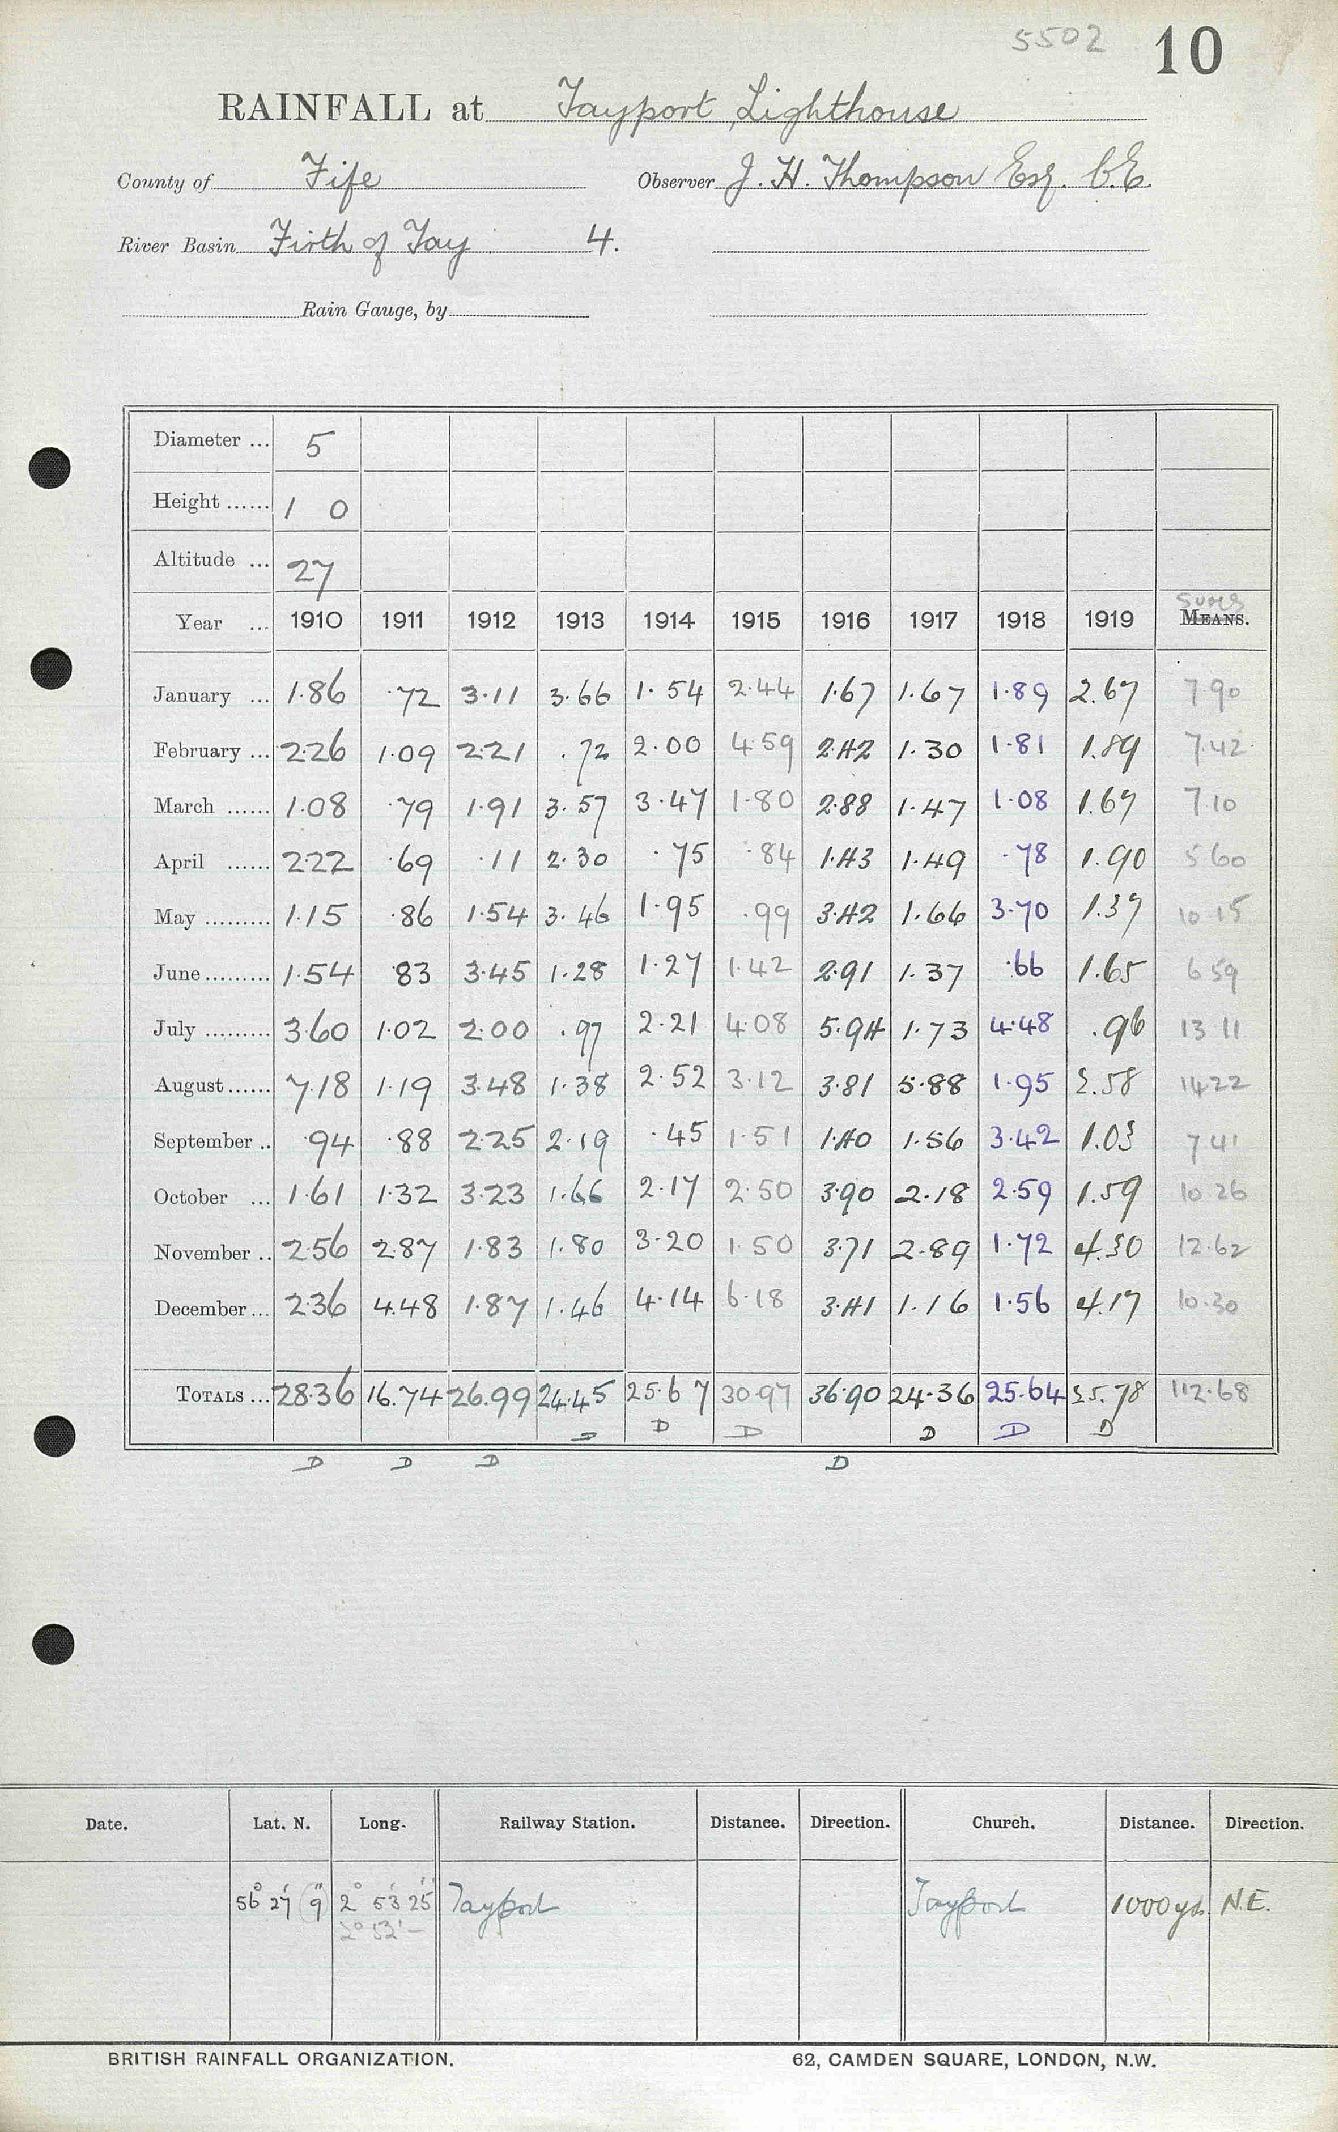 5502 10
RAINFALL at Tayport Lighthouse
County of Fife Observer J. H. Thompson Esq. C.E.
River Basin Firth of Tay 4.
Rain Gauge, by
Diameter ... 5
Height ...... 1 0
Altitude ... 27
Sums
Year ... 1910 1911 1912 1913 1914 1915 1916 1917 1918 1919 MEANS.
January ... 1.86 .72 3.11 3.66 1.54 2.44 1.67 1.67 1.89 2.67 7.90
February ... 2.26 1.09 2.21 .72 2.00 4.59 2.42 1.30 1.81 1.89 7.42
March ...... 1.08 .79 1.91 3.57 3.47 1.80 2.88 1.47 1.08 1.67 7.10
April ...... 2.22 .69 .11 2.30 .75 .84 1.43 1.49 .78 1.90 5.60
May ......... 1.15 .86 1.54 3.46 1.95 .99 3.42 1.66 3.70 1.37 10.15
June ......... 1.54 .83 3.45 1.28 1.27 1.42 2.91 1.37 .66 1.65 6.59
July ......... 3.60 1.02 2.00 .97 2.21 4.08 5.94 1.73 4.48 .96 13.11
August ...... 7.18 1.19 3.48 1.38 2.52 3.12 3.81 5.88 1.95 2.58 14.22
September .. .94 .88 2.25 2.19 .45 1.51 1.40 1.56 3.42 1.03 7.41
October ... 1.61 1.32 3.23 1.66 2.17 2.50 3.90 2.18 2.59 1.59 10.26
November .. 2.56 2.87 1.83 1.80 3.20 1.50 3.71 2.89 1.72 4.30 12.62
December ... 2.36 4.48 1.87 1.46 4.14 6.18 3.41 1.16 1.56 4.17 10.30
TOTALS ... 28.36 16.74 26.99 24.45 25.67 30.97 36.90 24.36 25.64 25.78 112.68
D D D D D D
D D D D
Date. Lat. N. Long. Railway Station. Distance. Direction. Church. Distance. Direction.
56° 27' (9" 2° 53' 25" Tayport Tayport 1000 yds N.E.
BRITISH RAINFALL ORGANIZATION. 62, CAMDEN SQUARE, LONDON, N.W.